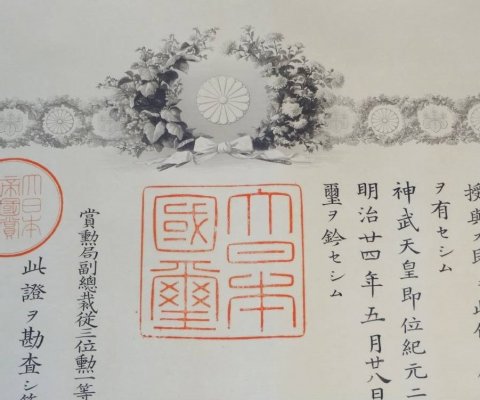 授與ス
ヲ有セシム
神武天皇即位紀元二
明治廿四年五月廿八日
璽ヲ鈐セシム
大日本
國璽
賞勲局副總裁從三位勲一等
此證ヲ勘査シ
大日本